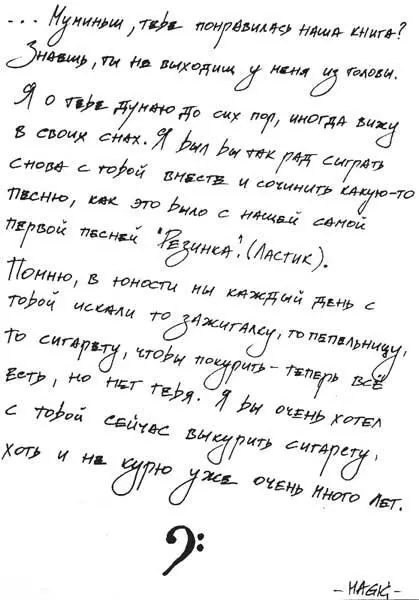 ... Муминыш, тебе понравилась наша книга?
Знаешь, ти не выходищ у меня из головы.
Я о тебе думаю до сих пор, иногда вижу
в своих снах. Я был бы так рад сыграть
снова с тобой вместе и сочинить какую-то
песню, как это было с нашей самой
первой песней "Резинка". (Ластик).
Помню, в юности мы каждый день с
тобой искали то зажигалку, то пепельницу,
то сигарету, чтобы покурить - теперь всё
есть, но нет тебя. Я бы очень хотел
с тобой сейчас выкурить сигарету,
хоть и не курю уже очень много лет.
- MAGIĆ -